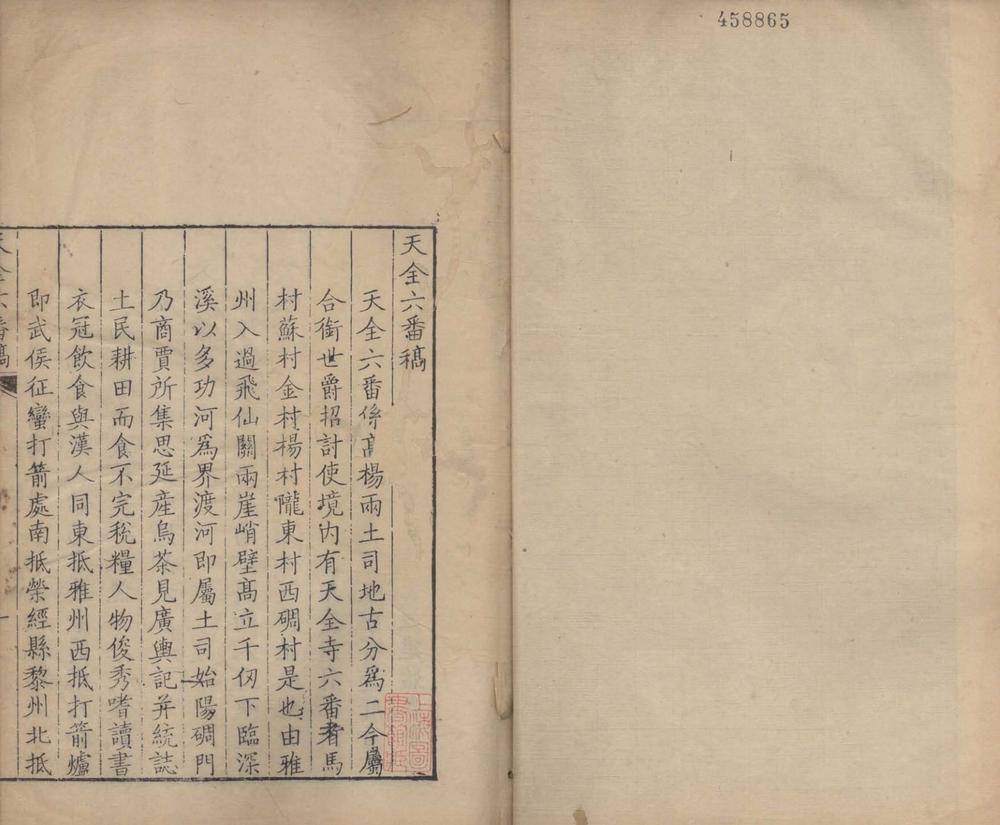 458865
天全六番稿
天全六番係高楊兩土司地古分爲二今屬
合銜世爵招討使境内有天全寺六番者馬
村蘇村金村楊村隴東村西碉村是也由雅
州入過飛仙關兩崖峭壁高立千仞下臨深
溪以多功河爲界渡河即屬土司始陽碉門
乃商賈所集思延産烏茶見廣輿記并統誌
土民耕田而食不完稅糧人物俊秀嗜讀書
衣冠飲食與漢人同東抵雅州西抵打箭爐
即武侯征蠻打箭處南抵榮經縣黎州北抵
天全六番稿
一
上海圖書館藏